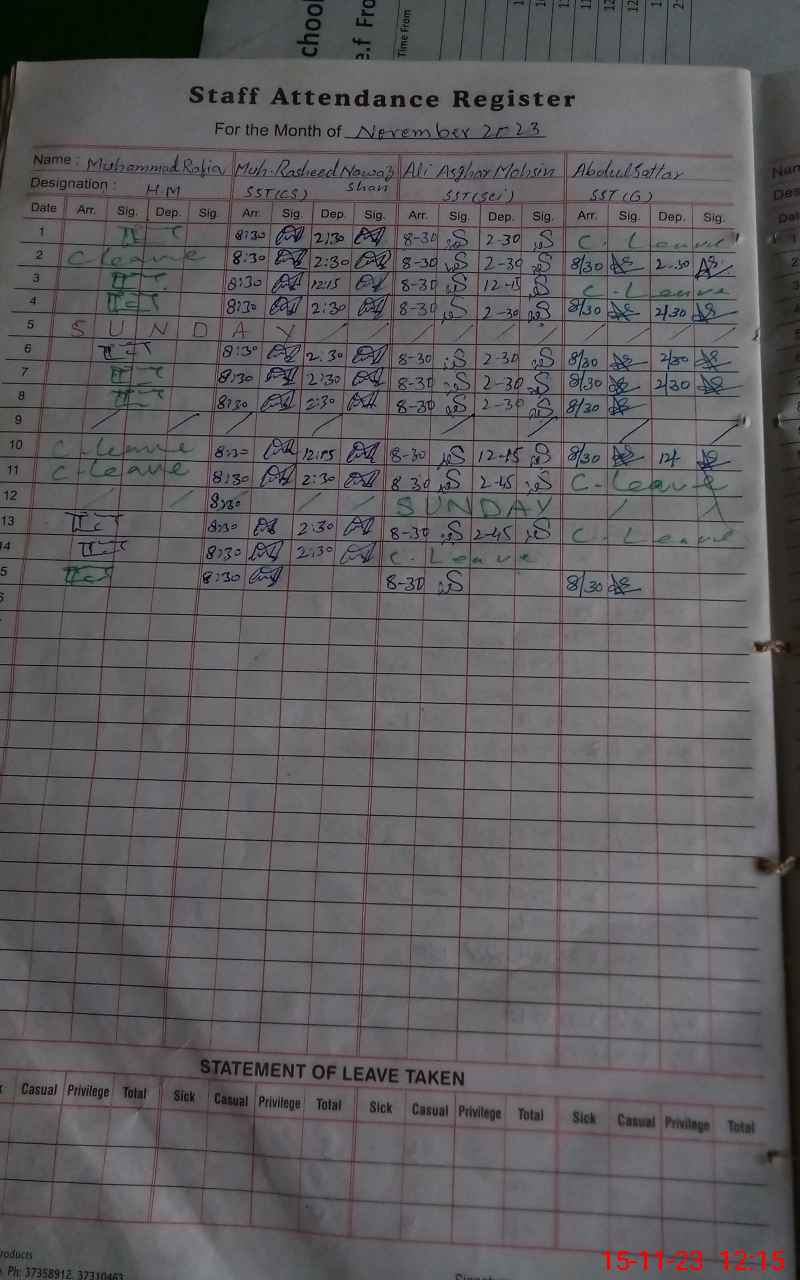 chool
e.f Fro
Time From
Staff Attendance Register
For the Month of November 2023
Name : Muhammad Rafiq Muh. Rasheed Nawaz Shan Ali Asghar Mohsin Abdul Sattar
Designation : H.M SST(CS) SST(Sci) SST(G)
Date Arr. Sig. Dep. Sig. Arr. Sig. Dep. Sig. Arr. Sig. Dep. Sig. Arr. Sig. Dep. Sig.
1 8:30 2:30 8-30 2-30 C. Leave
2 C leave 8:30 2:30 8-30 2-30 8/30 2-30
3 8:30 12:15 8-30 12-15 C-Leave
4 8:30 2:30 8-30 2-30 8/30 2/30
5 S U N D A Y
6 8:30 2:30 8-30 2-30 8/30 2/30
7 8:30 2:30 8-30 2-30 8/30 2/30
8 8:30 2:30 8-30 2-30 8/30
9
10 C-leave 8:30 12:15 8-30 12-15 8/30 12/
11 C-leave 8:30 2:30 8 30 2-45 C-leave
12 8:30 SUNDAY
13 8:30 2:30 8-30 2-45 C. Leave
14 8:30 2:30 C. Leave
5 8:30 8-30 8/30
STATEMENT OF LEAVE TAKEN
Casual Privilege Total Sick Casual Privilege Total Sick Casual Privilege Total Sick Casual Privilege Total
roducts
Ph: 37358912, 37310463
15-11-23 12:15